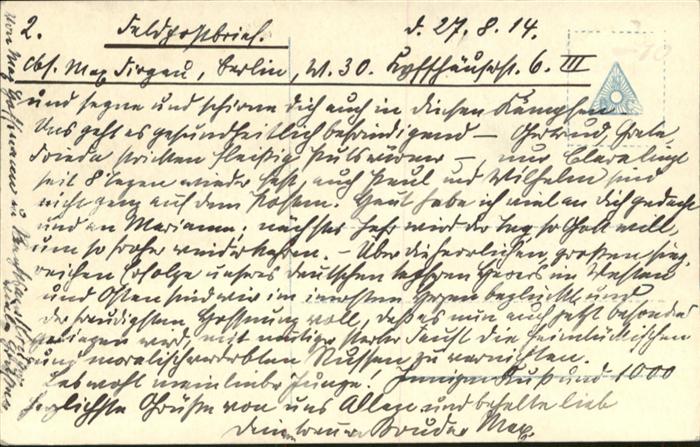 2. Feldpostbrief. d. 27.8.14.
Abs. Max Firgau, Berlin, W. 30. Kyffhäuserst. 6. III
und segne und schirme dich auch in diesen Kämpfen
Uns geht es gesundheitlich befriedigend — Gertrud, Grete
Frieda stricken fleißig Pulswärmer —, nur Clara liegt
seit 8 Tagen wieder fest, auch Paul und Wilhelm sind
nicht ganz auf dem Posten. Heut habe ich viel an dich gedacht
und an Marianne; nächstes Jahr wird der Tag, so Gott will,
um so froher wiederkehren. — Über die herrlichen, großen sieg-
reichen Erfolge unseres deutschen tapferen Heeres im Westen
und Osten sind wir im innersten Herzen beglückt und
der freudigsten Hoffnung voll, daß es nun auch jetzt besonders
gelingen wird, mit mutiger starker Faust die heimtückischen
und moralisch verderbten Russen zu vernichten.
Leb wohl mein lieber Junge! Innigen Kuß und 1000
herzlichste Grüße von uns Allen und behalte lieb
Deinen treuen Bruder Max.